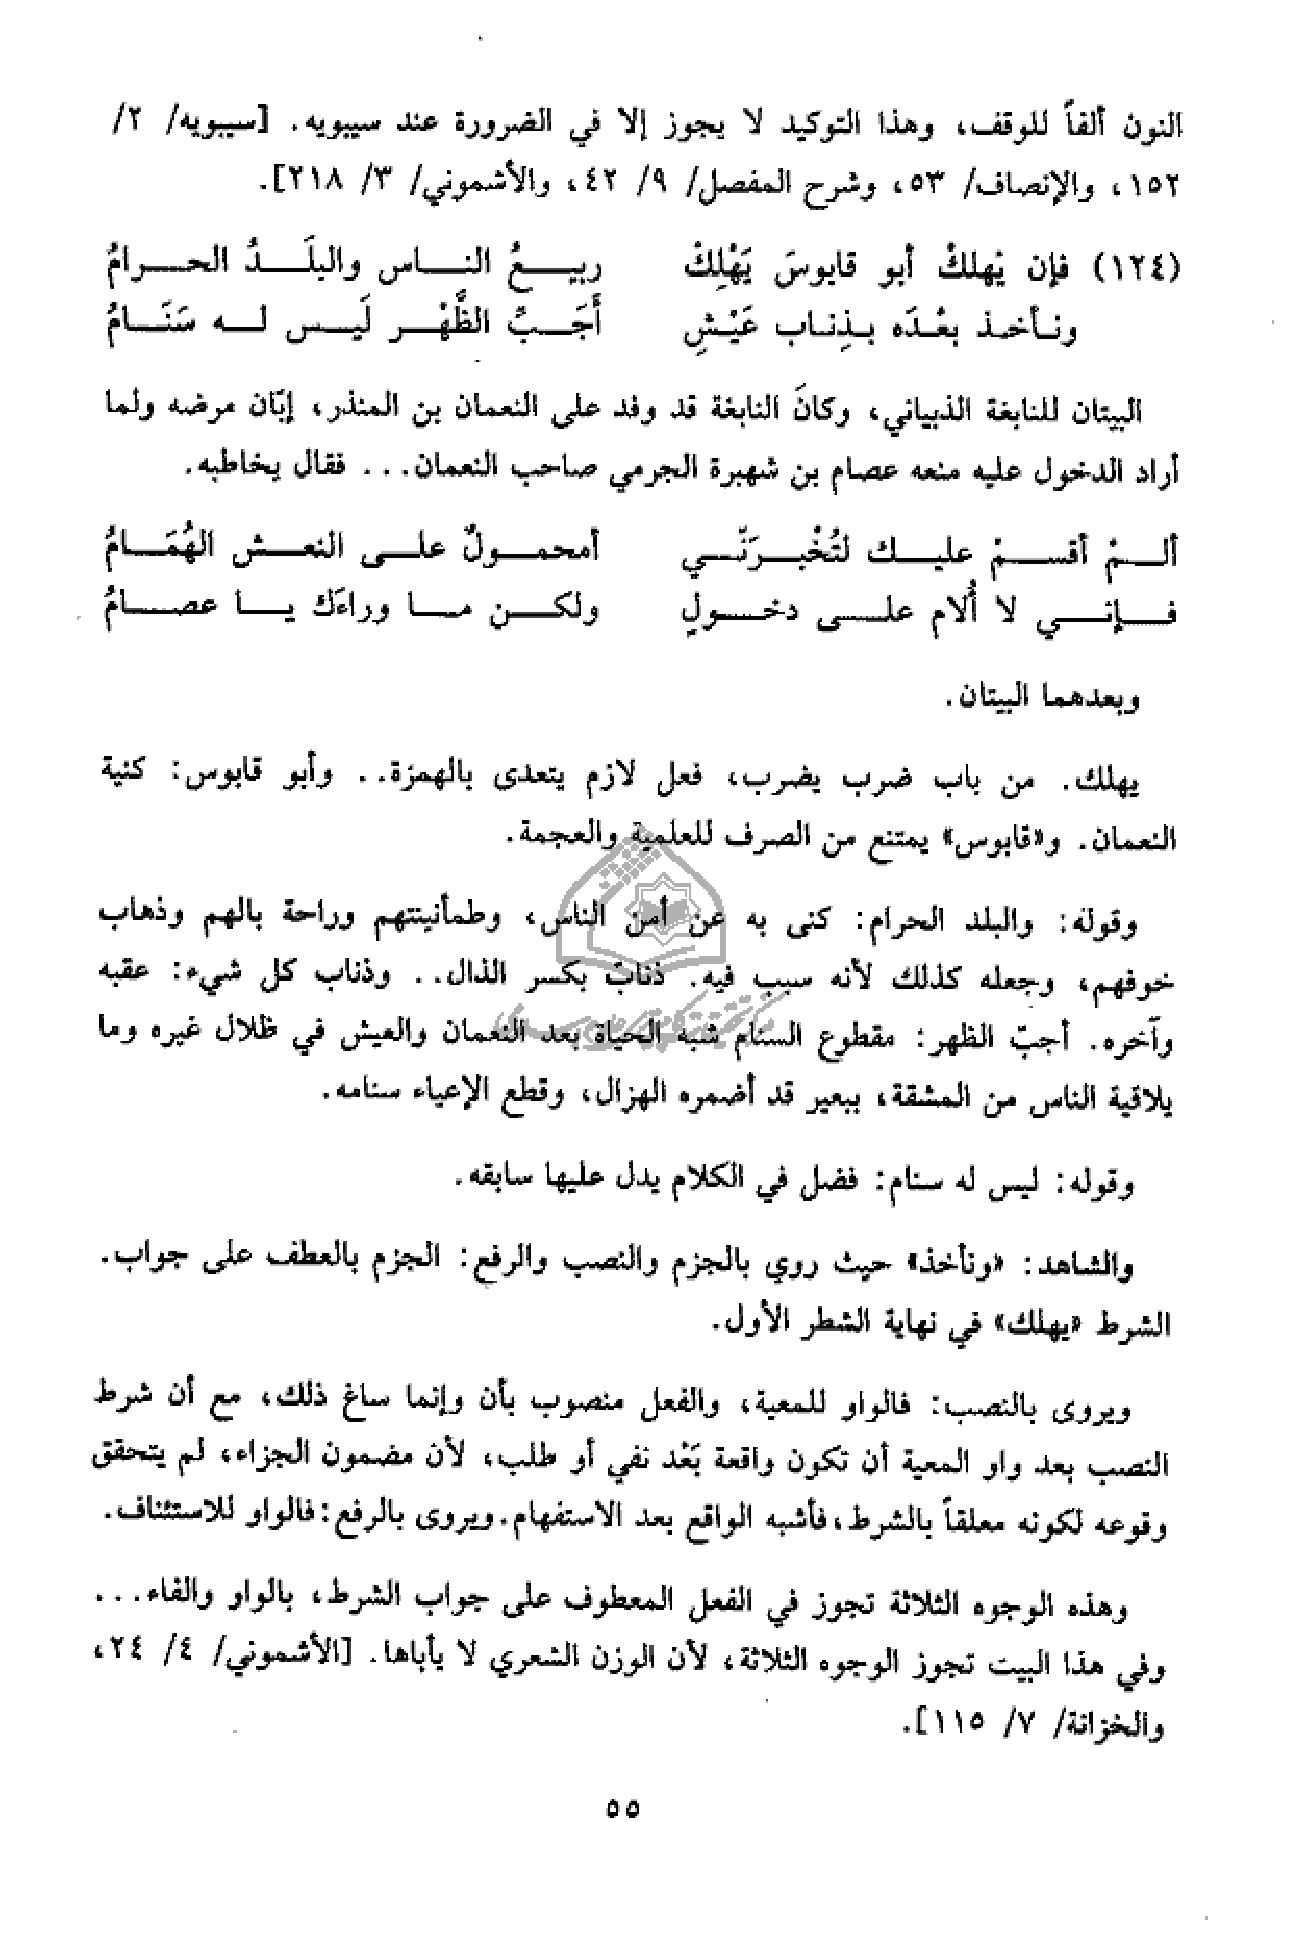 النون ألفاً للوقف، وهذا التوكيد لا يجوز إلا في الضرورة عند سيبويه. [سيبويه/ ٢/
١٥٢، والإنصاف/ ٥٣، وشرح المفصل/ ٩/ ٤٢، والأشموني/ ٣/ ٢١٨].
(١٢٤) فإن يْهلكْ أبو قابوسَ يَهْلِكْ ربيـعُ النـاس والبلَـدُ الحـرامُ
ونـأخـذ بعْـدَه بـذِنـاب عَيْـشِ أَجَـبِّ الظَّهْـر لَيـس لـه سَنَـامُ
البيتان للنابغة الذبياني، وكانَ النابغة قد وفد على النعمان بن المنذر، إبّان مرضه ولما
أراد الدخول عليه منعه عصام بن شهبرة الجرمي صاحب النعمان... فقال يخاطبه.
ألـمْ أقسـمْ عليـك لتُخْبـرَنّـي أمحمـولٌ علـى النعـش الهُمَـامُ
فـإنـي لا أُلام علـى دخـولٍ ولكـن مـا وراءَك يـا عصـامُ
وبعدهما البيتان.
يهلك. من باب ضرب يضرب، فعل لازم يتعدى بالهمزة.. وأبو قابوس: كنية
النعمان. و«قابوس» يمتنع من الصرف للعلمية والعجمة.
وقوله: والبلد الحرام: كنى به عن أمن الناس، وطمأنينتهم وراحة بالهم وذهاب
خوفهم، وجعله كذلك لأنه سبب فيه. ذناب بكسر الذال.. وذناب كل شيء: عقبه
وآخره. أجبّ الظهر: مقطوع السنام شبه الحياة بعد النعمان والعيش في ظلال غيره وما
يلاقية الناس من المشقة، ببعير قد أضمره الهزال، وقطع الإعياء سنامه.
وقوله: ليس له سنام: فضل في الكلام يدل عليها سابقه.
والشاهد: «ونأخذ» حيث روي بالجزم والنصب والرفع: الجزم بالعطف على جواب.
الشرط «يهلك» في نهاية الشطر الأول.
ويروى بالنصب: فالواو للمعية، والفعل منصوب بأن وإنما ساغ ذلك، مع أن شرط
النصب بعد واو المعية أن تكون واقعة بَعْد نفي أو طلب، لأن مضمون الجزاء، لم يتحقق
وقوعه لكونه معلقاً بالشرط، فأشبه الواقع بعد الاستفهام. ويروى بالرفع: فالواو للاستئناف.
وهذه الوجوه الثلاثة تجوز في الفعل المعطوف على جواب الشرط، بالواو والفاء...
وفي هذا البيت تجوز الوجوه الثلاثة، لأن الوزن الشعري لا يأباها. [الأشموني/ ٤/ ٢٤،
والخزانة/ ٧/ ١١٥].
٥٥